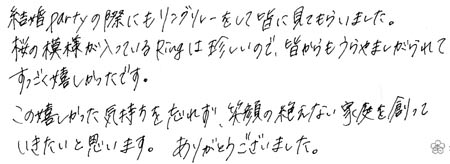 結婚partyの際にもリングリレーをして皆に見てもらいました。
桜の模様が入っているRingは珍しいので、皆からもうらやましがられて
すっごく嬉しかったです。
この嬉しかった気持ちを忘れず、笑顔の絶えない家庭を創って
いきたいと思います。 ありがとうございました。